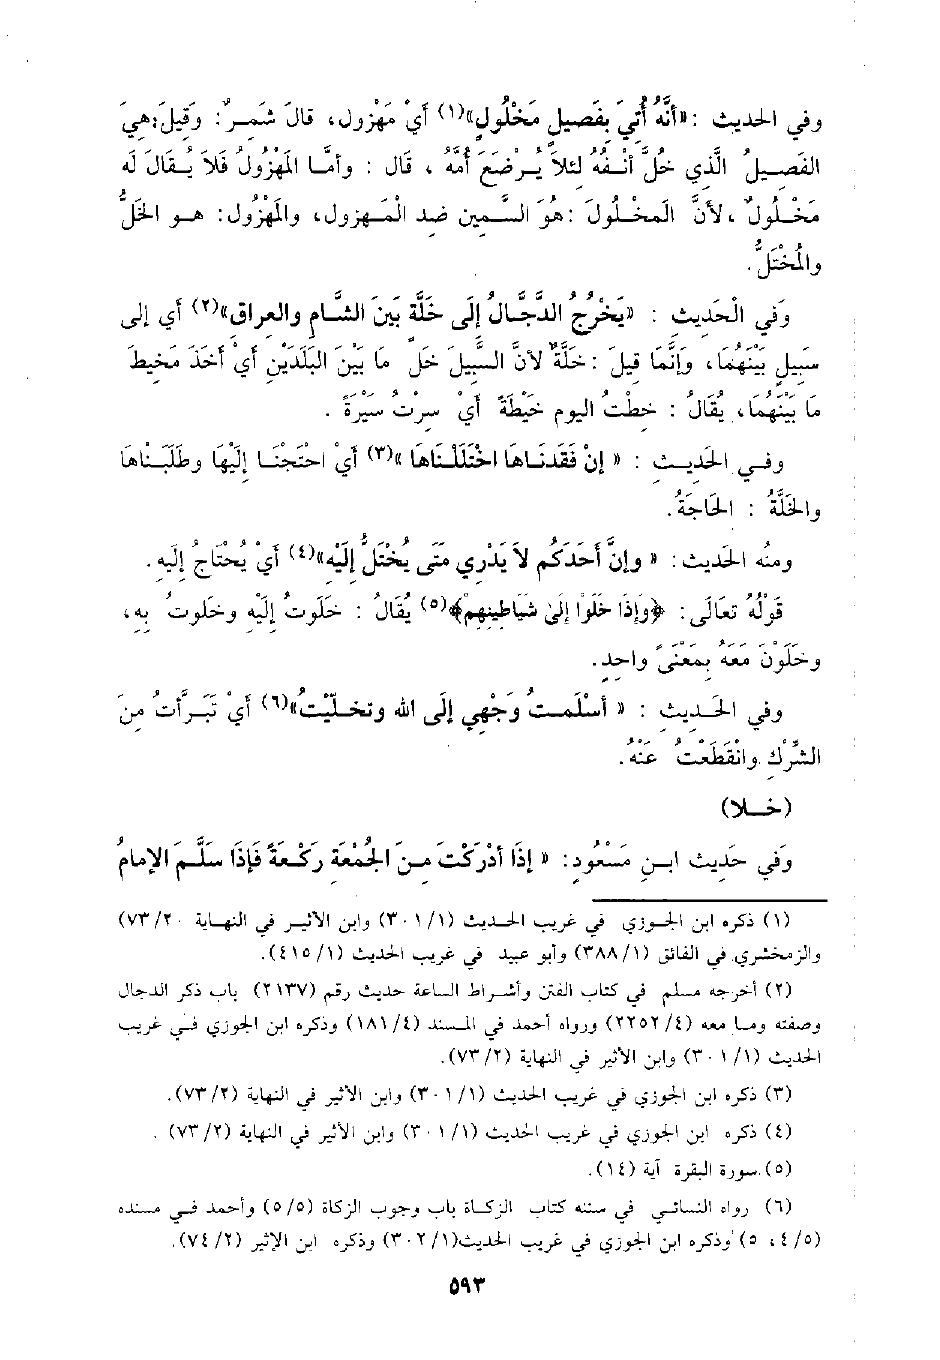 وفي الحديث : «أَنَّهُ أُتِيَ بِفَصِيلٍ مَخْلُولٍ»(١) أَيْ مَهْزُولٍ، قالَ شَمِرٌ: وَقِيلَ: هِيَ
الفَصِيلُ الَّذي خُلَّ أَنْفُهُ لئَلاَّ يَرْضَعَ أُمَّهُ ، قال : وأمَّا المَهْزُولُ فَلاَ يُقَالُ لَه
مَخْلُولٌ ،لأنَّ المَخْلُولَ :هُوَ السَّمِين ضِد المَهزول، والمَهْزُول: هو الخَلُّ
والمُخْتَلُّ.
وَفي الْحَدِيث : «يَخْرُج الدَّجَّالُ إِلَى خَلَّة بَيْنَ الشَّامِ والعراق»(٢) أَي إلى
سَبِيلٍ بَيْنَهُمَا، وَإِنَّمَا قِيلَ :خَلَّةٌ لأنَّ السَّبِيلَ خَل مَا بَيْنَ البَلَدَيْنِ أَيْ أَخَذَ مَخِيطَ
مَا بَيْنَهُمَا، يُقَالُ : خِطْتُ اليوم خَيْطَةً أَيْ سِرْتُ سَيْرَةً .
وفي الحَديث : « إنْ فَقَدنَاهَا اخْتَلَلْنَاهَا »(٣) أَيْ احتَجْنَا إِلَيْهَا وطَلَبْنَاهَا
والخَلَّةُ : الحَاجَةُ.
ومنْه الحَديث: « وإنَّ أَحَدَكُم لاَ يَدْرِي مَتَى يُخْتَلُّ إِلَيْه»(٤) أَيْ يُحْتَاج إلَيه.
قَوْلُهُ تعَالَى: ﴿وَإِذَا خَلَوْا إِلَىٰ شَيَاطِينِهِمْ﴾(٥) يُقَالُ : خَلَوتُ إلَيْهِ وخَلَوتُ بِهِ،
وخَلَوْتَ مَعَهُ بِمَعْنًى واحِدٍ.
وفي الحَديثِ : « أَسْلَمتُ وَجْهِي إِلَى الله وتخلّيْتُ»(٦) أَيْ تَبَرَّأتُ مِنَ
الشِّرْكِ وانْقَطَعْتُ عَنْهُ.
(خـلا)
وَفي حَديث ابن مَسْعُودٍ: « إِذَا أدْرَكْتَ مِنَ الجُمْعَةِ رَكْعَةً فَإِذَا سَلَّمَ الإمامُ
(١) ذكره ابن الجوزي في غريب الحديث (٣٠١/١) وابن الأثير في النهاية ٧٣/٢٠)
والزمخشري في الفائق (٣٨٨/١) وأبو عبيد في غريب الحديث (٤١٥/١).
(٢) أخرجه مسلم في كتاب الفتن وأشراط الساعة حديث رقم (٢١٣٧) باب ذكر الدجال
وصفته وما معه (٢٢٥٢/٤) ورواه أحمد في المسند (١٨١/٤) وذكره ابن الجوزي في غريب
الحديث (٣٠١/١) وابن الأثير في النهاية (٧٣/٢).
(٣) ذكره ابن الجوزي في غريب الحديث (٣٠١/١) وابن الأثير في النهاية (٧٣/٢).
(٤) ذكره ابن الجوزي في غريب الحديث (٣٠١/١) وابن الأثير في النهاية (٧٣/٢) .
(٥) سورة البقرة آية (١٤).
(٦) رواه النسائي في سننه كتاب الزكاة باب وجوب الزكاة (٥/٥) وأحمد في مسنده
(٤/٥ ، ٥) وذكره ابن الجوزي في غريب الحديث(٣٠٢/١) وذكره ابن الأثير (٧٤/٢).
٥٩٣